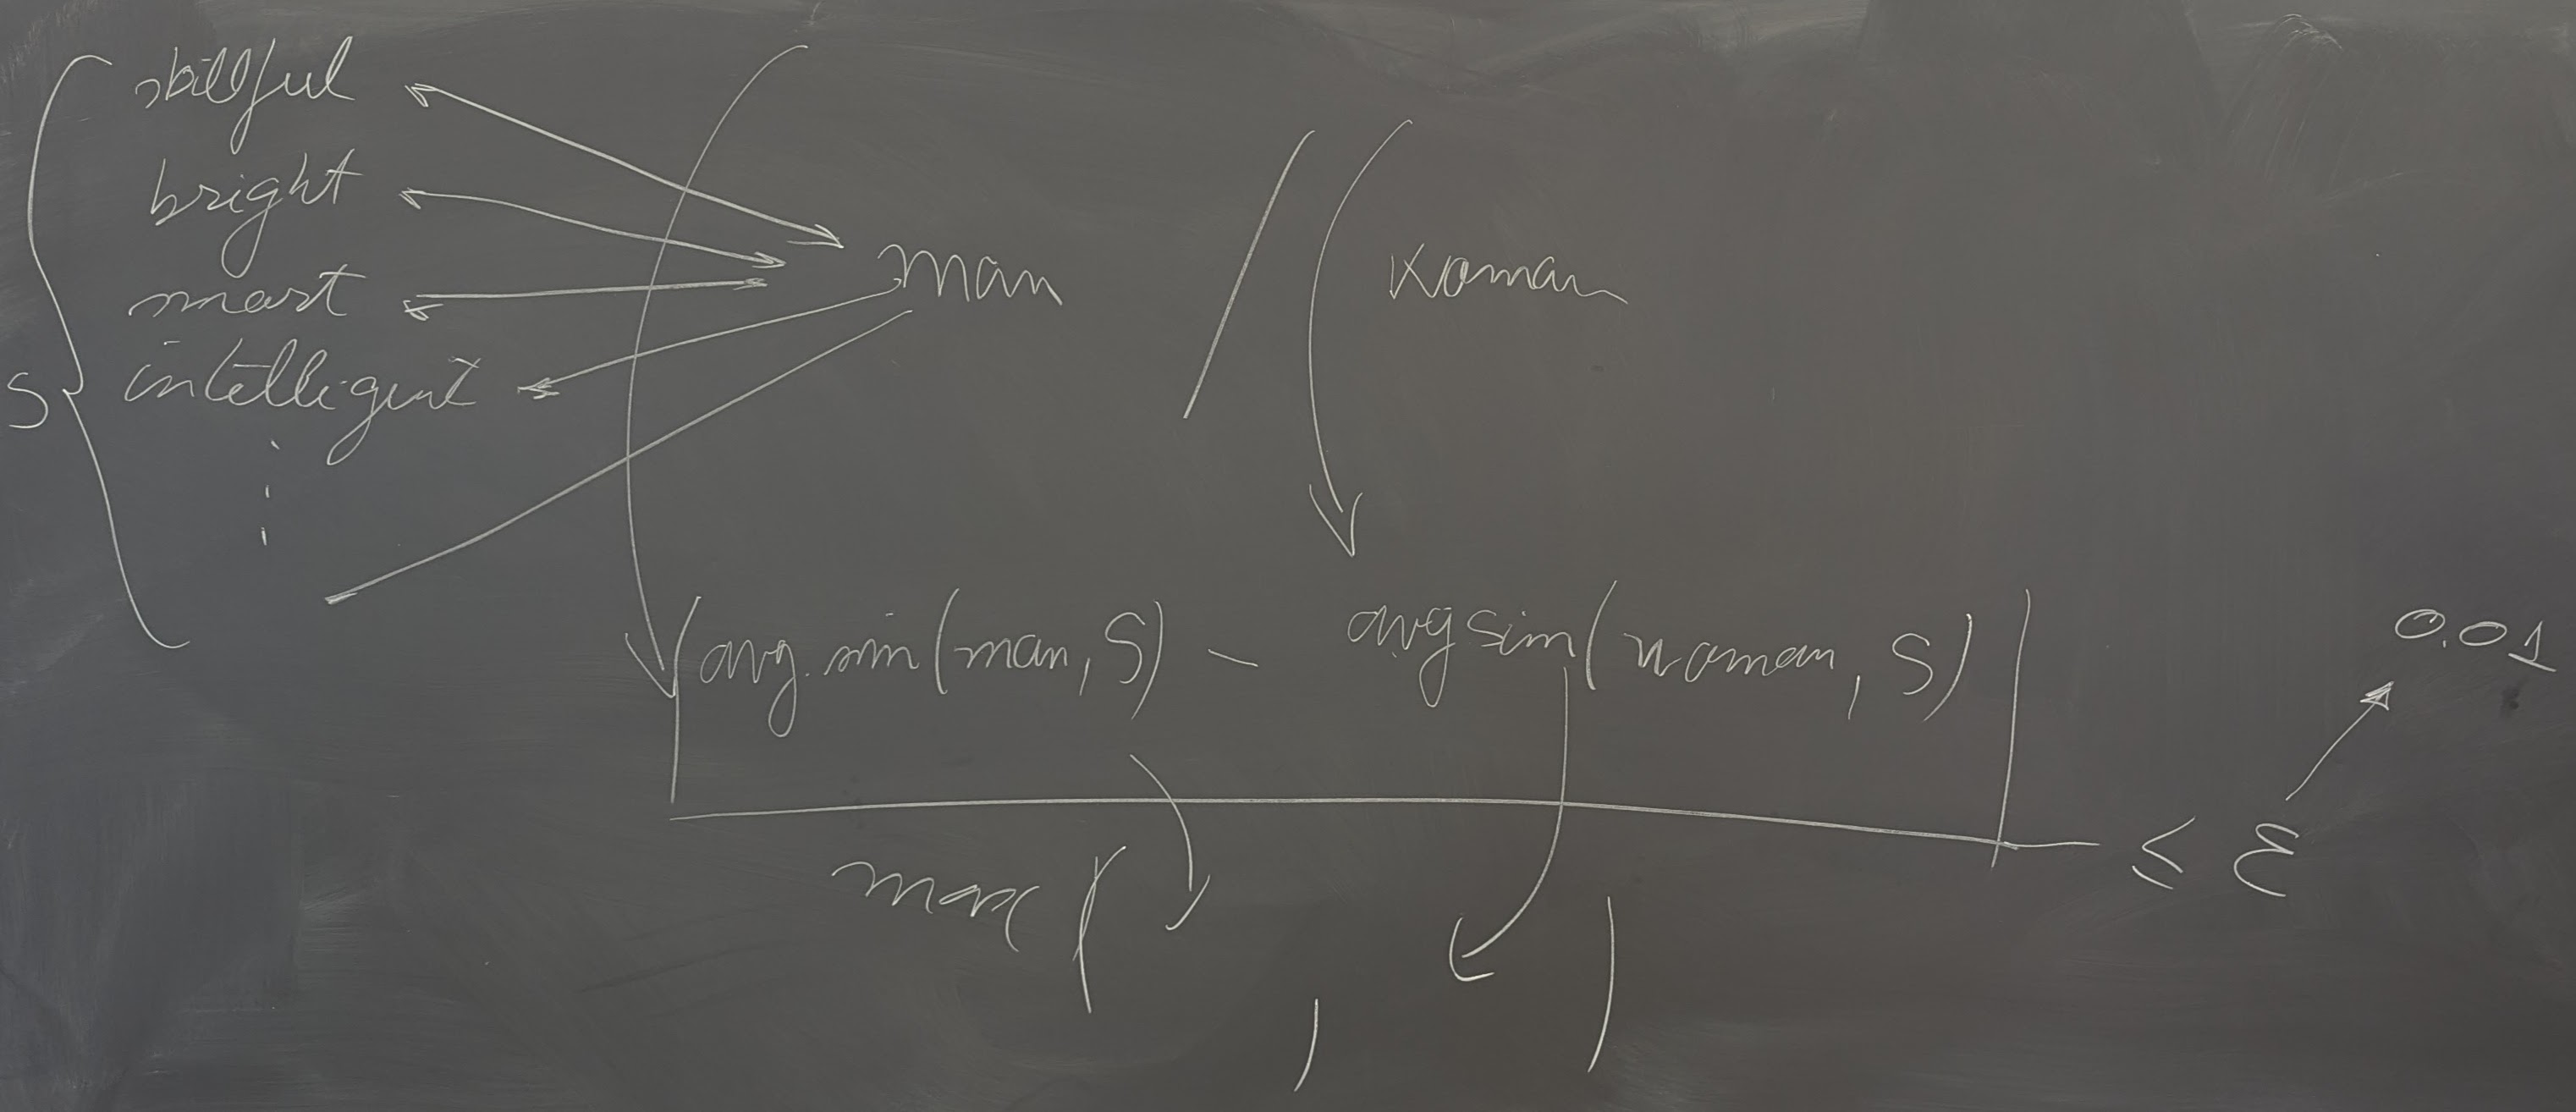 skillful
bright
smart
intelligent
S
man / woman
|avg. sim(man, S) - avg sim(woman, S)|
max( , )
≤ ε
0.01